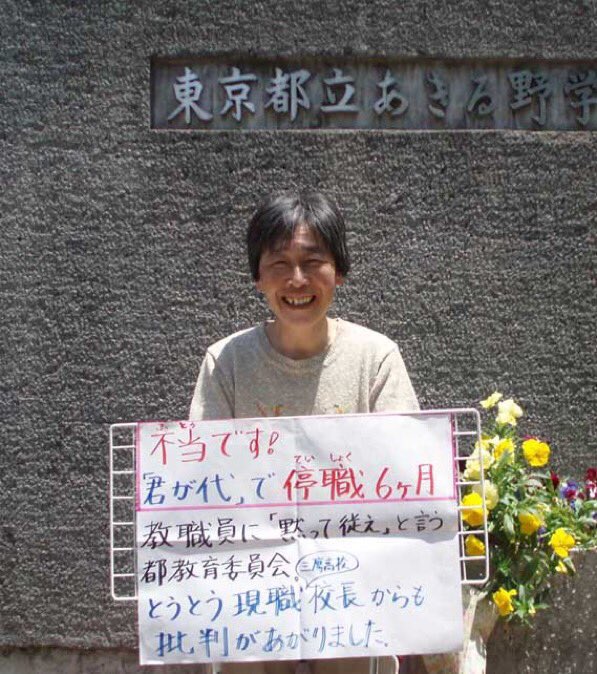 東京都立あきる野学
ふとう
不当です!
ていしょく
「君が代」で停職6ヶ月
教職員に「黙って従え」と言う
都教育委員会。三鷹高校
とうとう現職校長からも
批判があがりました.